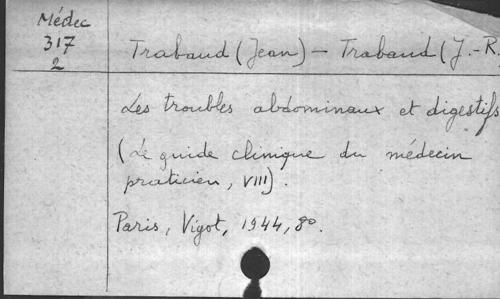 Médec
317
2
Trabaud (Jean) - Trabaud (J.-R.
Les troubles abdominaux et digestifs
(Le guide clinique du médecin
praticien, VIII).
Paris, Vigot, 1944, 8º.